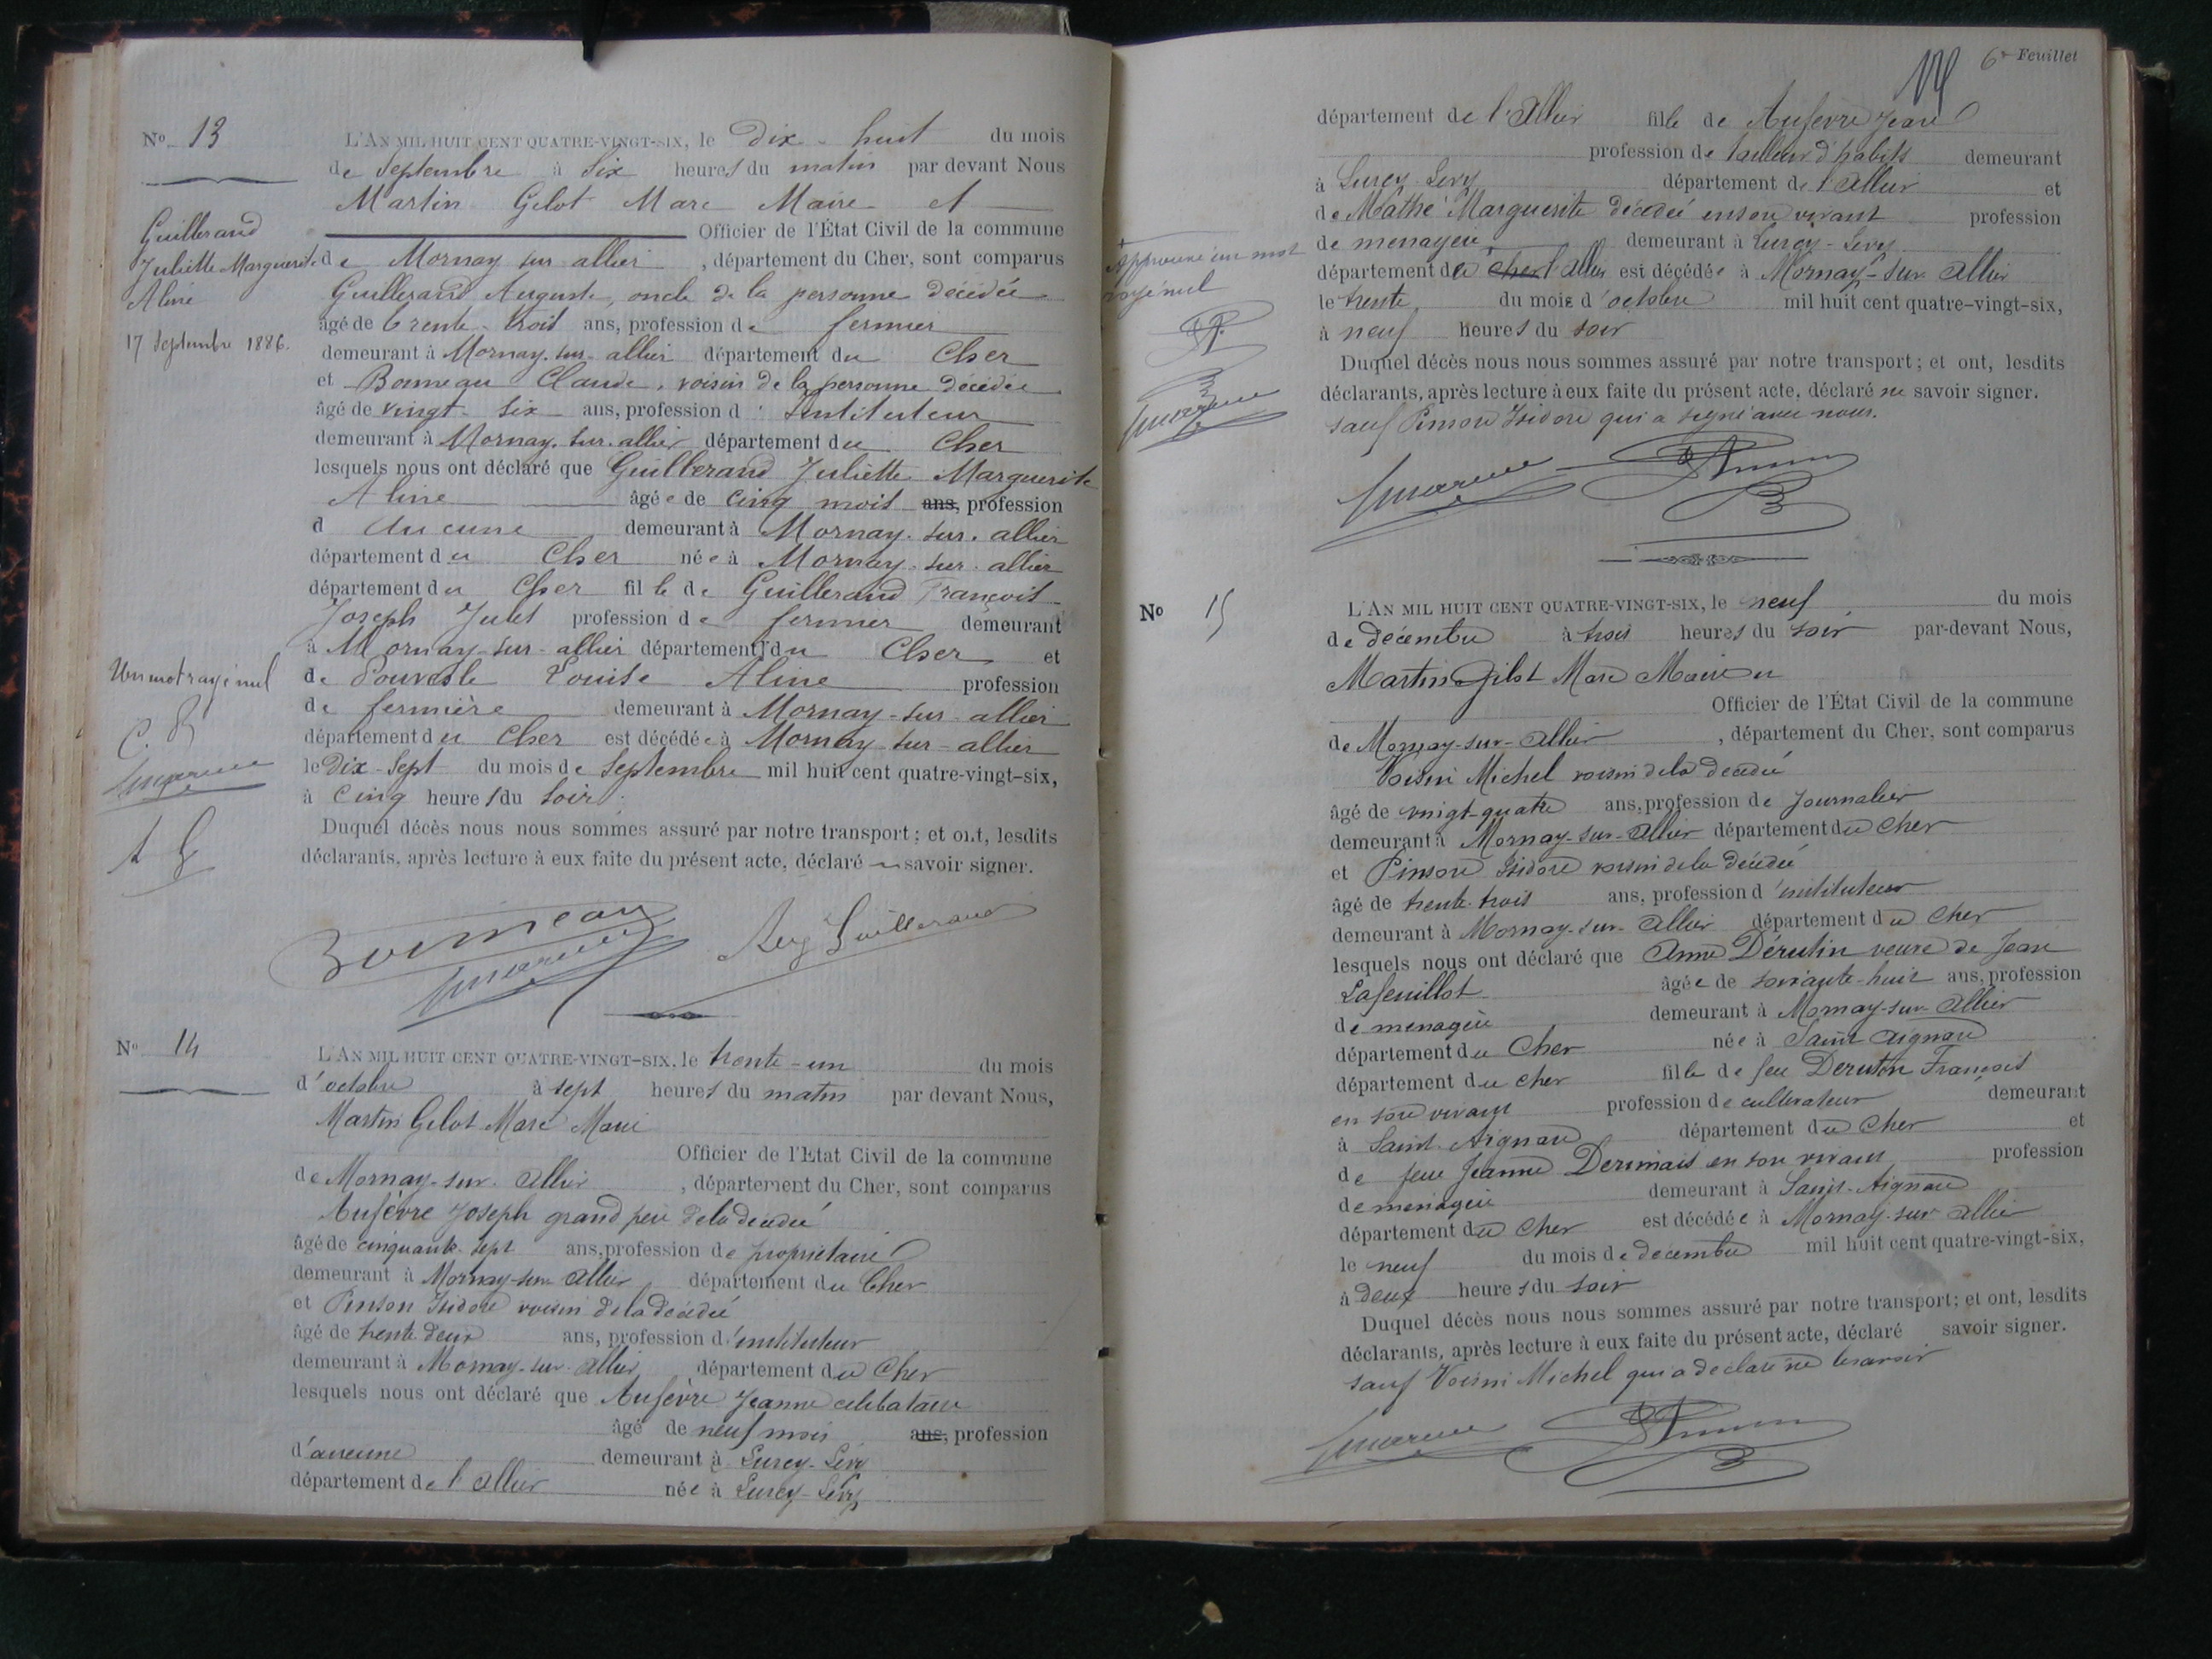 No 13
Guillerand
Juliette Marguerite
Aline
17 Septembre 1886.
L'AN MIL HUIT CENT QUATRE-VINGT-SIX, le Dix-huit du mois
de Septembre à Six heures du matin par devant Nous
Martin Gelot Marc Maire et
Officier de l'État Civil de la commune
de Mornay sur allier, département du Cher, sont comparus
Guillerand Auguste, oncle de la personne décédée
âgé de trente-trois ans, profession de fermier
demeurant à Mornay-sur-allier département du Cher
et Bonneau Claude, voisin de la personne décédée
âgé de vingt-six ans, profession d'instituteur
demeurant à Mornay-sur-allier département du Cher
lesquels nous ont déclaré que Guillerand Juliette Marguerite
Aline âgée de cinq mois ans, profession
d Aucune demeurant à Mornay-sur-allier
département du Cher née à Mornay-sur-allier
département du Cher fille de Guillerand François
Joseph Jules profession de fermier demeurant
à Mornay-sur-allier département du Cher et
de Louise Aline profession
de fermière demeurant à Mornay-sur-allier
département du Cher est décédée à Mornay-sur-allier
le Dix-Sept du mois de Septembre mil huit cent quatre-vingt-six,
à Cinq heures du soir.
Duquel décès nous nous sommes assuré par notre transport; et ont, lesdits
déclarants, après lecture à eux faite du présent acte, déclaré savoir signer.
Un mot rayé nul
C. B
A G
Bonneau
Aug Guillerand
No 14
L'AN MIL HUIT CENT QUATRE-VINGT-SIX, le trente-un du mois
d'octobre à sept heures du matin par devant Nous,
Martin Gelot Marc Maire
Officier de l'État Civil de la commune
de Mornay-sur-Allier, département du Cher, sont comparus
Aufèvre Joseph grand père de la décédée
âgé de cinquante-sept ans, profession de propriétaire
demeurant à Mornay-sur-Allier département du Cher
et Pinson Isidore voisin de la décédée
âgé de trente deux ans, profession d'instituteur
demeurant à Mornay-sur-Allier département du Cher
lesquels nous ont déclaré que Aufèvre Jeanne célibataire
âgé de neuf mois ans, profession
d'aucune demeurant à Lurcy-Lévy
département de l'Allier née à Lurcy-Lévy
6e Feuillet
département de l'Allier fille de Aufèvre Jean
profession de tailleur d'habits demeurant
à Lurcy-Lévy département de l'Allier et
de Mathé Marguerite décédée en son vivant profession
de ménagère demeurant à Lurcy-Lévy
département de cher l'Allier est décédée à Mornay-sur-Allier
le trente du mois d'octobre mil huit cent quatre-vingt-six,
à neuf heures du soir
Duquel décès nous nous sommes assuré par notre transport; et ont, lesdits
déclarants, après lecture à eux faite du présent acte, déclaré ne savoir signer.
sauf Pinson Isidore qui a signé avec nous.
Approuvé un mot
rayé nul
No 15
L'AN MIL HUIT CENT QUATRE-VINGT-SIX, le neuf du mois
de décembre à trois heures du soir par-devant Nous,
Martin Gelot Marc Maire
Officier de l'État Civil de la commune
de Mornay-sur-Allier, département du Cher, sont comparus
Voisin Michel voisin de la décédée
âgé de vingt-quatre ans, profession de Journalier
demeurant à Mornay-sur-Allier département du Cher
et Pinson Isidore voisin de la décédée
âgé de trente-trois ans, profession d'instituteur
demeurant à Mornay-sur-Allier département du Cher
lesquels nous ont déclaré que Anne Dérutin veuve de Jean
Lafeuillot âgée de soixante-huit ans, profession
de ménagère demeurant à Mornay-sur-Allier
département du Cher née à Saint Aignan
département du cher fille de feu Derutin François
en son vivant profession de cultivateur demeurant
à Saint-Aignan département du Cher et
de feue Jeanne en son vivant profession
de ménagère demeurant à Saint-Aignan
département du Cher est décédée à Mornay-sur-Allier
le neuf du mois de décembre mil huit cent quatre-vingt-six,
à deux heures du soir
Duquel décès nous nous sommes assuré par notre transport; et ont, lesdits
déclarants, après lecture à eux faite du présent acte, déclaré savoir signer.
sauf Voisin Michel qui a déclaré ne le savoir